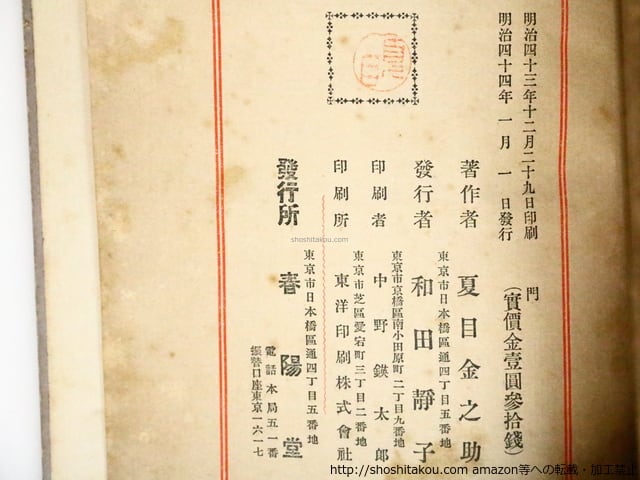 明治四十三年十二月二十九日印刷
明治四十四年一月一日發行
門
(實價金壹圓參拾錢)
著作者 夏目金之助
東京市日本橋區通四丁目五番地
發行者 和田靜子
東京市京橋區南小田原町二丁目九番地
印刷者 中野鍈太郎
東京市芝區愛宕町三丁目二番地
印刷所 東洋印刷株式會社
東京市日本橋區通四丁目五番地
發行所 春陽堂
電話本局五一番
振替口座東京一六一七
shoshitakou.com
http://shoshitakou.com amazon等への転載・加工禁止